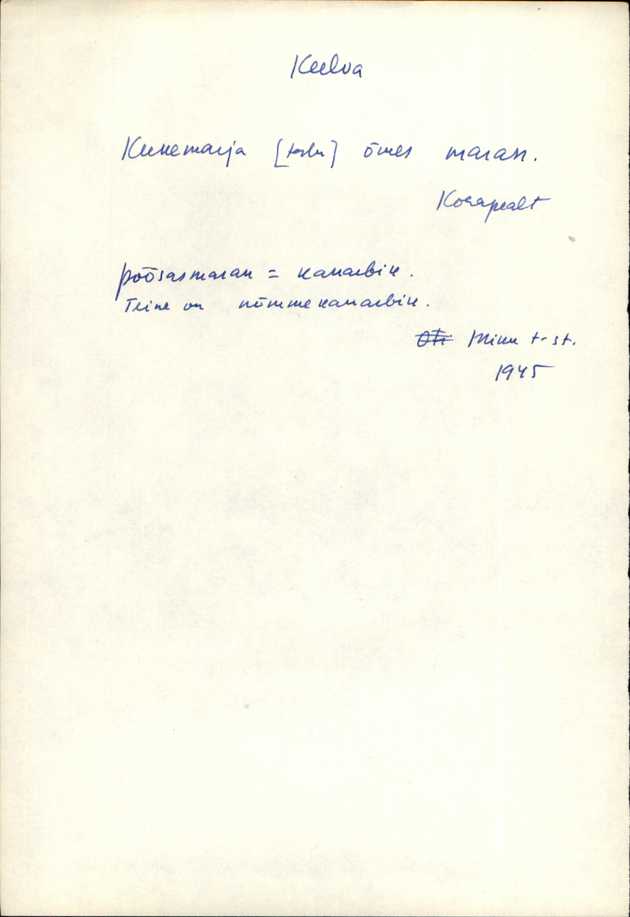 Keelva
Kukemarja [torbu] õues maran.
Korapealt
põõsasmaran = kanarbik.
Teine on nõmmekanarbik.
Minu t-st.
1945